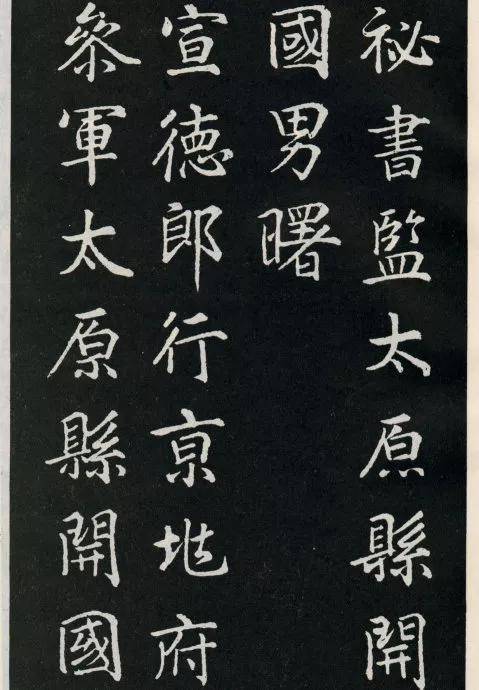 祕書監太原縣開
國男曙
宣徳郎行京兆府
叅軍太原縣開國